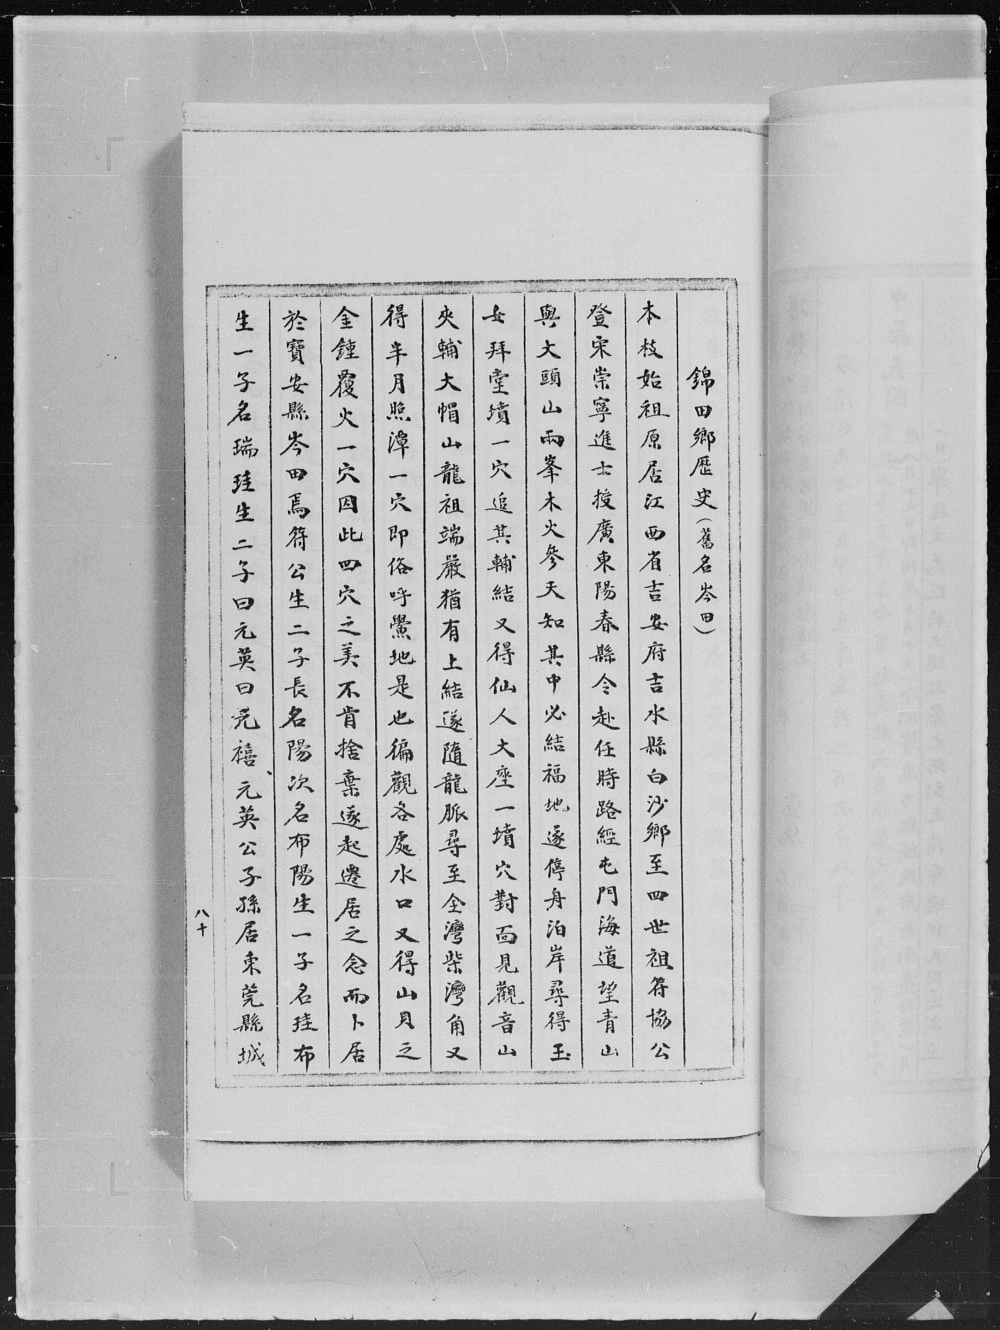 錦田鄉歷史（舊名岑田）
本枝始祖原居江西省吉安府吉水縣白沙鄉至四世祖符協公
登宋崇寧進士授廣東陽春縣令赴任時路經屯門海道望青山
與大頭山兩峯木火參天知其中必結福地遂停舟泊岸尋得玉
女拜堂墳一穴追其輔結又得仙人大座一墳穴對面見觀音山
夾輔大帽山龍祖端嚴猶有上結遂隨龍脈尋至全灣柴灣角又
得半月照潭一穴即俗呼鱟地是也徧觀各處水口又得山貝之
金鍾覆火一穴因此四穴之美不肯捨棄遂起遷居之念而卜居
於寶安縣岑田焉符公生二子長名陽次名布陽生一子名珪布
生一子名瑞珪生二子曰元英曰元禧、元英公子孫居東莞縣城
八十